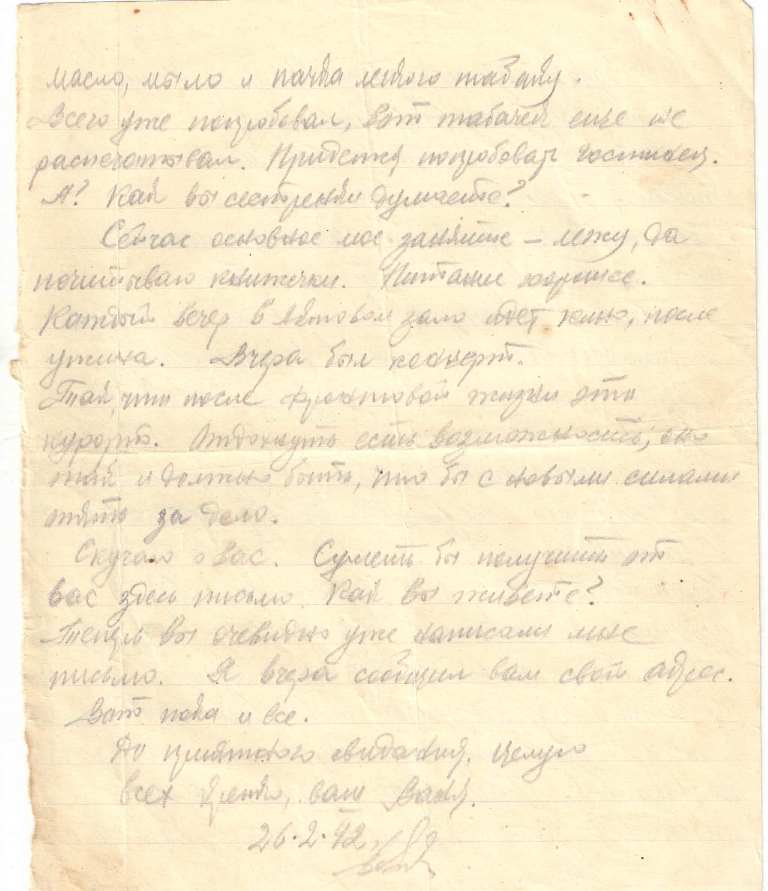 масло, мыло и пачка легкого табаку.
Всего уже попробовал, вот табачек еще не
распечатывал. Придется попробовать гостинец.
А? Как вы сестренки думаете?
Сейчас основное мое занятие – лежу, да
почитываю книжечки. Питание хорошее.
Каждый вечер в зале идет кино, после
ужина. Вчера был концерт.
Так, что после фронтовой жизни это
курорт. Отдохнуть есть возможность, оно
так и должно быть, что бы с новыми силами
опять за дело.
Скучаю о вас. Суметь бы получить от
вас здесь письмо. Как вы живете?
Теперь вы очевидно уже написали мне
письмо. Я вчера сообщил вам свой адрес.
Вот пока и все.
До приятного свидания. Целую
всех крепко, ваш Ваня.
26.2.42